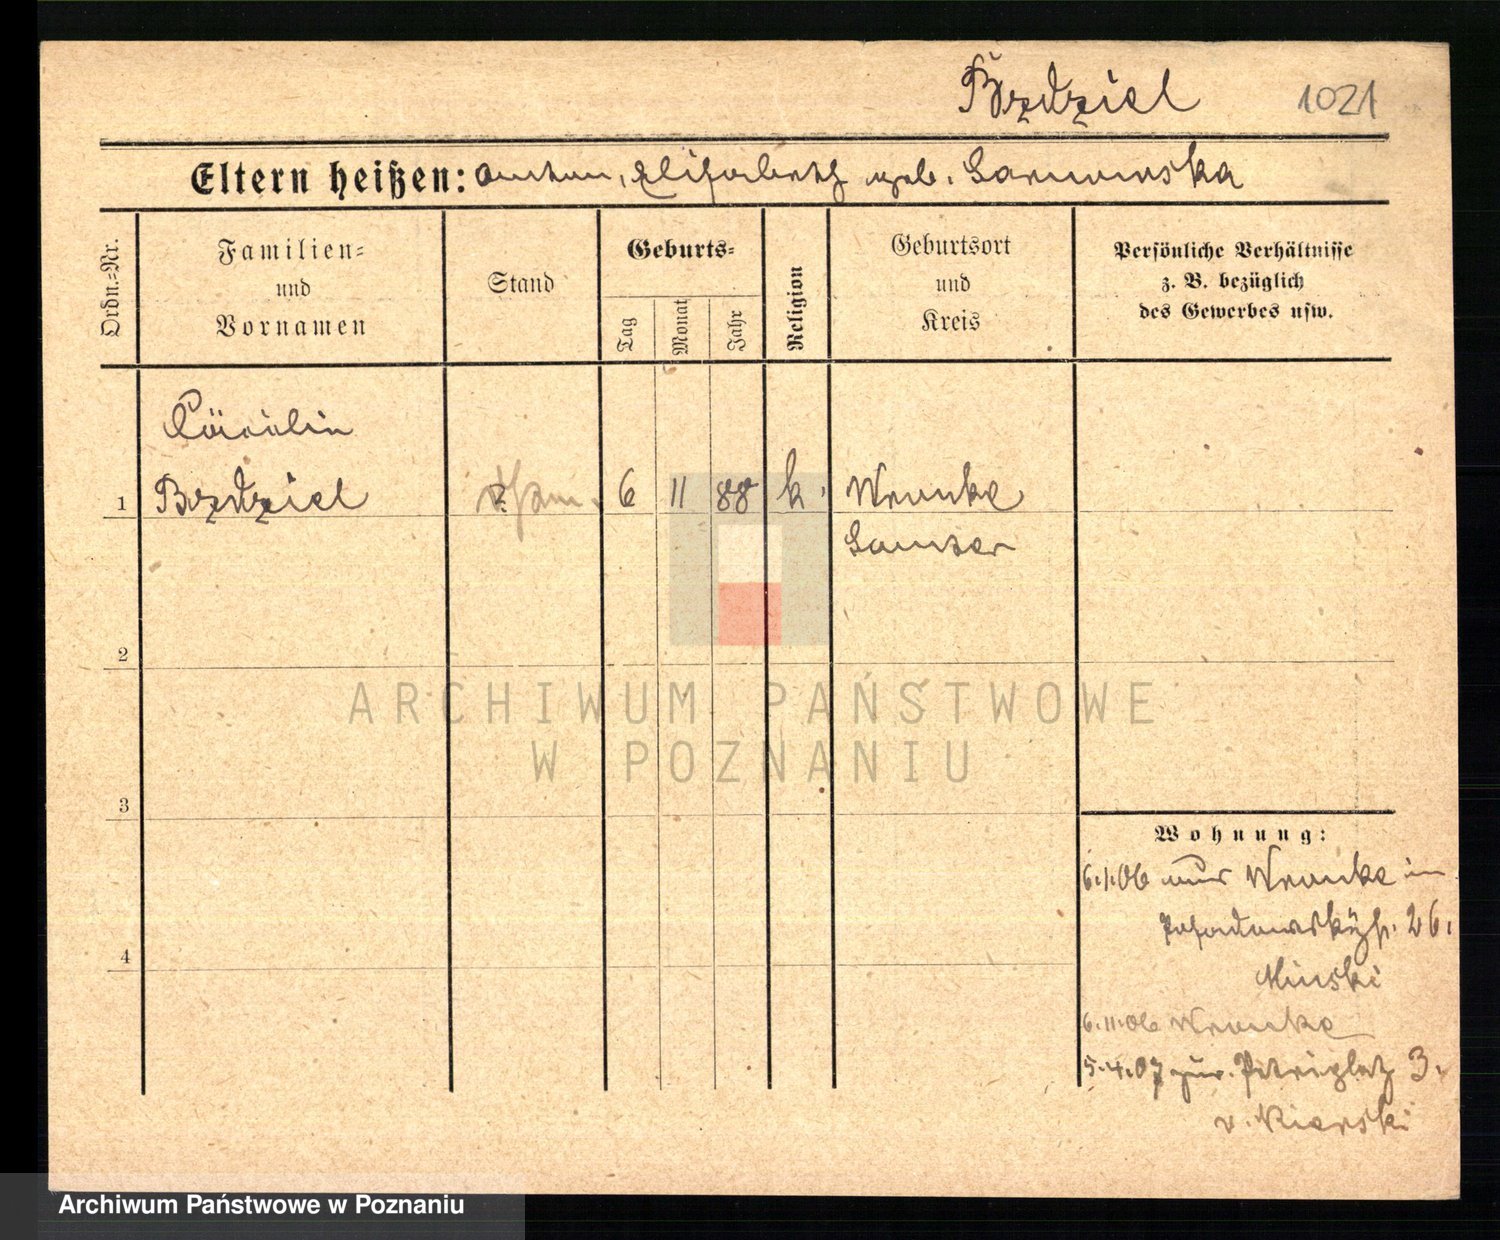 Bzdziel 1021
Eltern heißen: Anton, Elisabeth geb. Sarnowska
Ordn.=Nr.
Familien=
und
Vornamen
Stand
Geburts=
Tag
Monat
Jahr
Religion
Geburtsort
und
Kreis
Persönliche Verhältnisse
z. B. bezüglich
des Gewerbes usw.
Cäcilie
1 Bzdziel 6 11 88 k. Wronke
Samter
2
ARCHIWUM PAŃSTWOWE
W POZNANIU
3
Wohnung:
6.1.06 aus Wronke in
Posadowskystr. 26.
Minski
4
6.11.06 Wronke
5.4.07 zur. Petriplatz 3.
v. Kierski
Archiwum Państwowe w Poznaniu